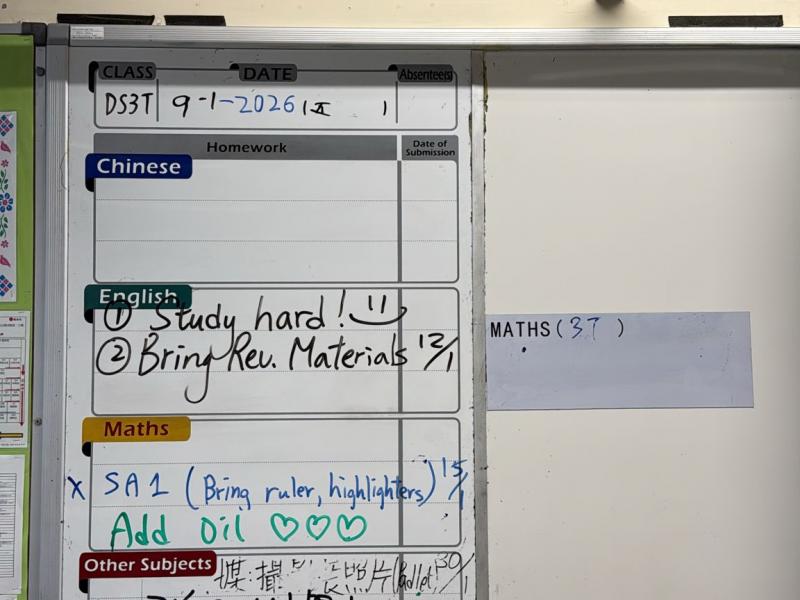 CLASS DATE Absentee(s)
DS3T 9-1-2026 (五 )
Homework Date of Submission
Chinese
English
① Study hard !
② Bring Rev. Materials 12/1
Maths
X SA1 (Bring ruler, highlighters) 15/1
Add Oil ♡♡♡
Other Subjects
照片 (Padlet) 30/1
MATHS( 3T )